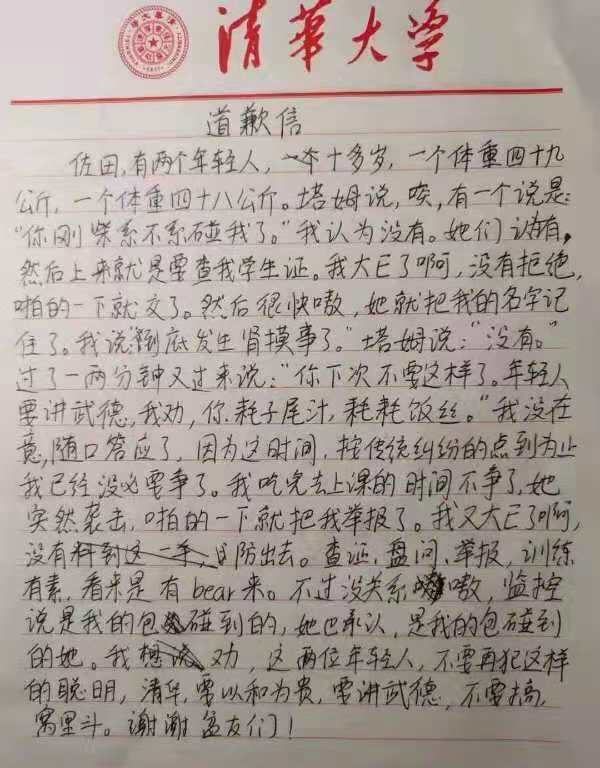 清華大学
道歉信
佐田，有两个年轻人，一个十多岁，一个体重四十九
公斤，一个体重四十八公斤。塔姆说，唉，有一个说是：
“你刚柴系不系碰我了。”我认为没有。她们认为有，
然后上来就是要查我学生证。我大E了啊，没有拒绝，
啪的一下就交了。然后很快嗷，她就把我的名字记
住了。我说“到底发生肾摸事了。”塔姆说：“没有。”
过了一两分钟又过来说：“你下次不要这样了。年轻人
要讲武德，我劝，你.耗子尾汁，耗耗饭丝。”我没在
意，随口答应了，因为这时间，按传统纠纷的点到为止
我已经没必要争了。我吃完去上课的时间不争了，她
突然袭击，啪的一下就把我举报了。我又大E了啊，
没有防出去。查证、盘问、举报，训练
有素，看来是有bear来。不过没关系嗷，监控
说是我的包碰到的，她也承认，是我的包碰到
的她。我劝，这两位年轻人，不要再犯这样
的聪明，清华，要以和为贵，要讲武德，不要搞
窝里斗。谢谢盆友们！